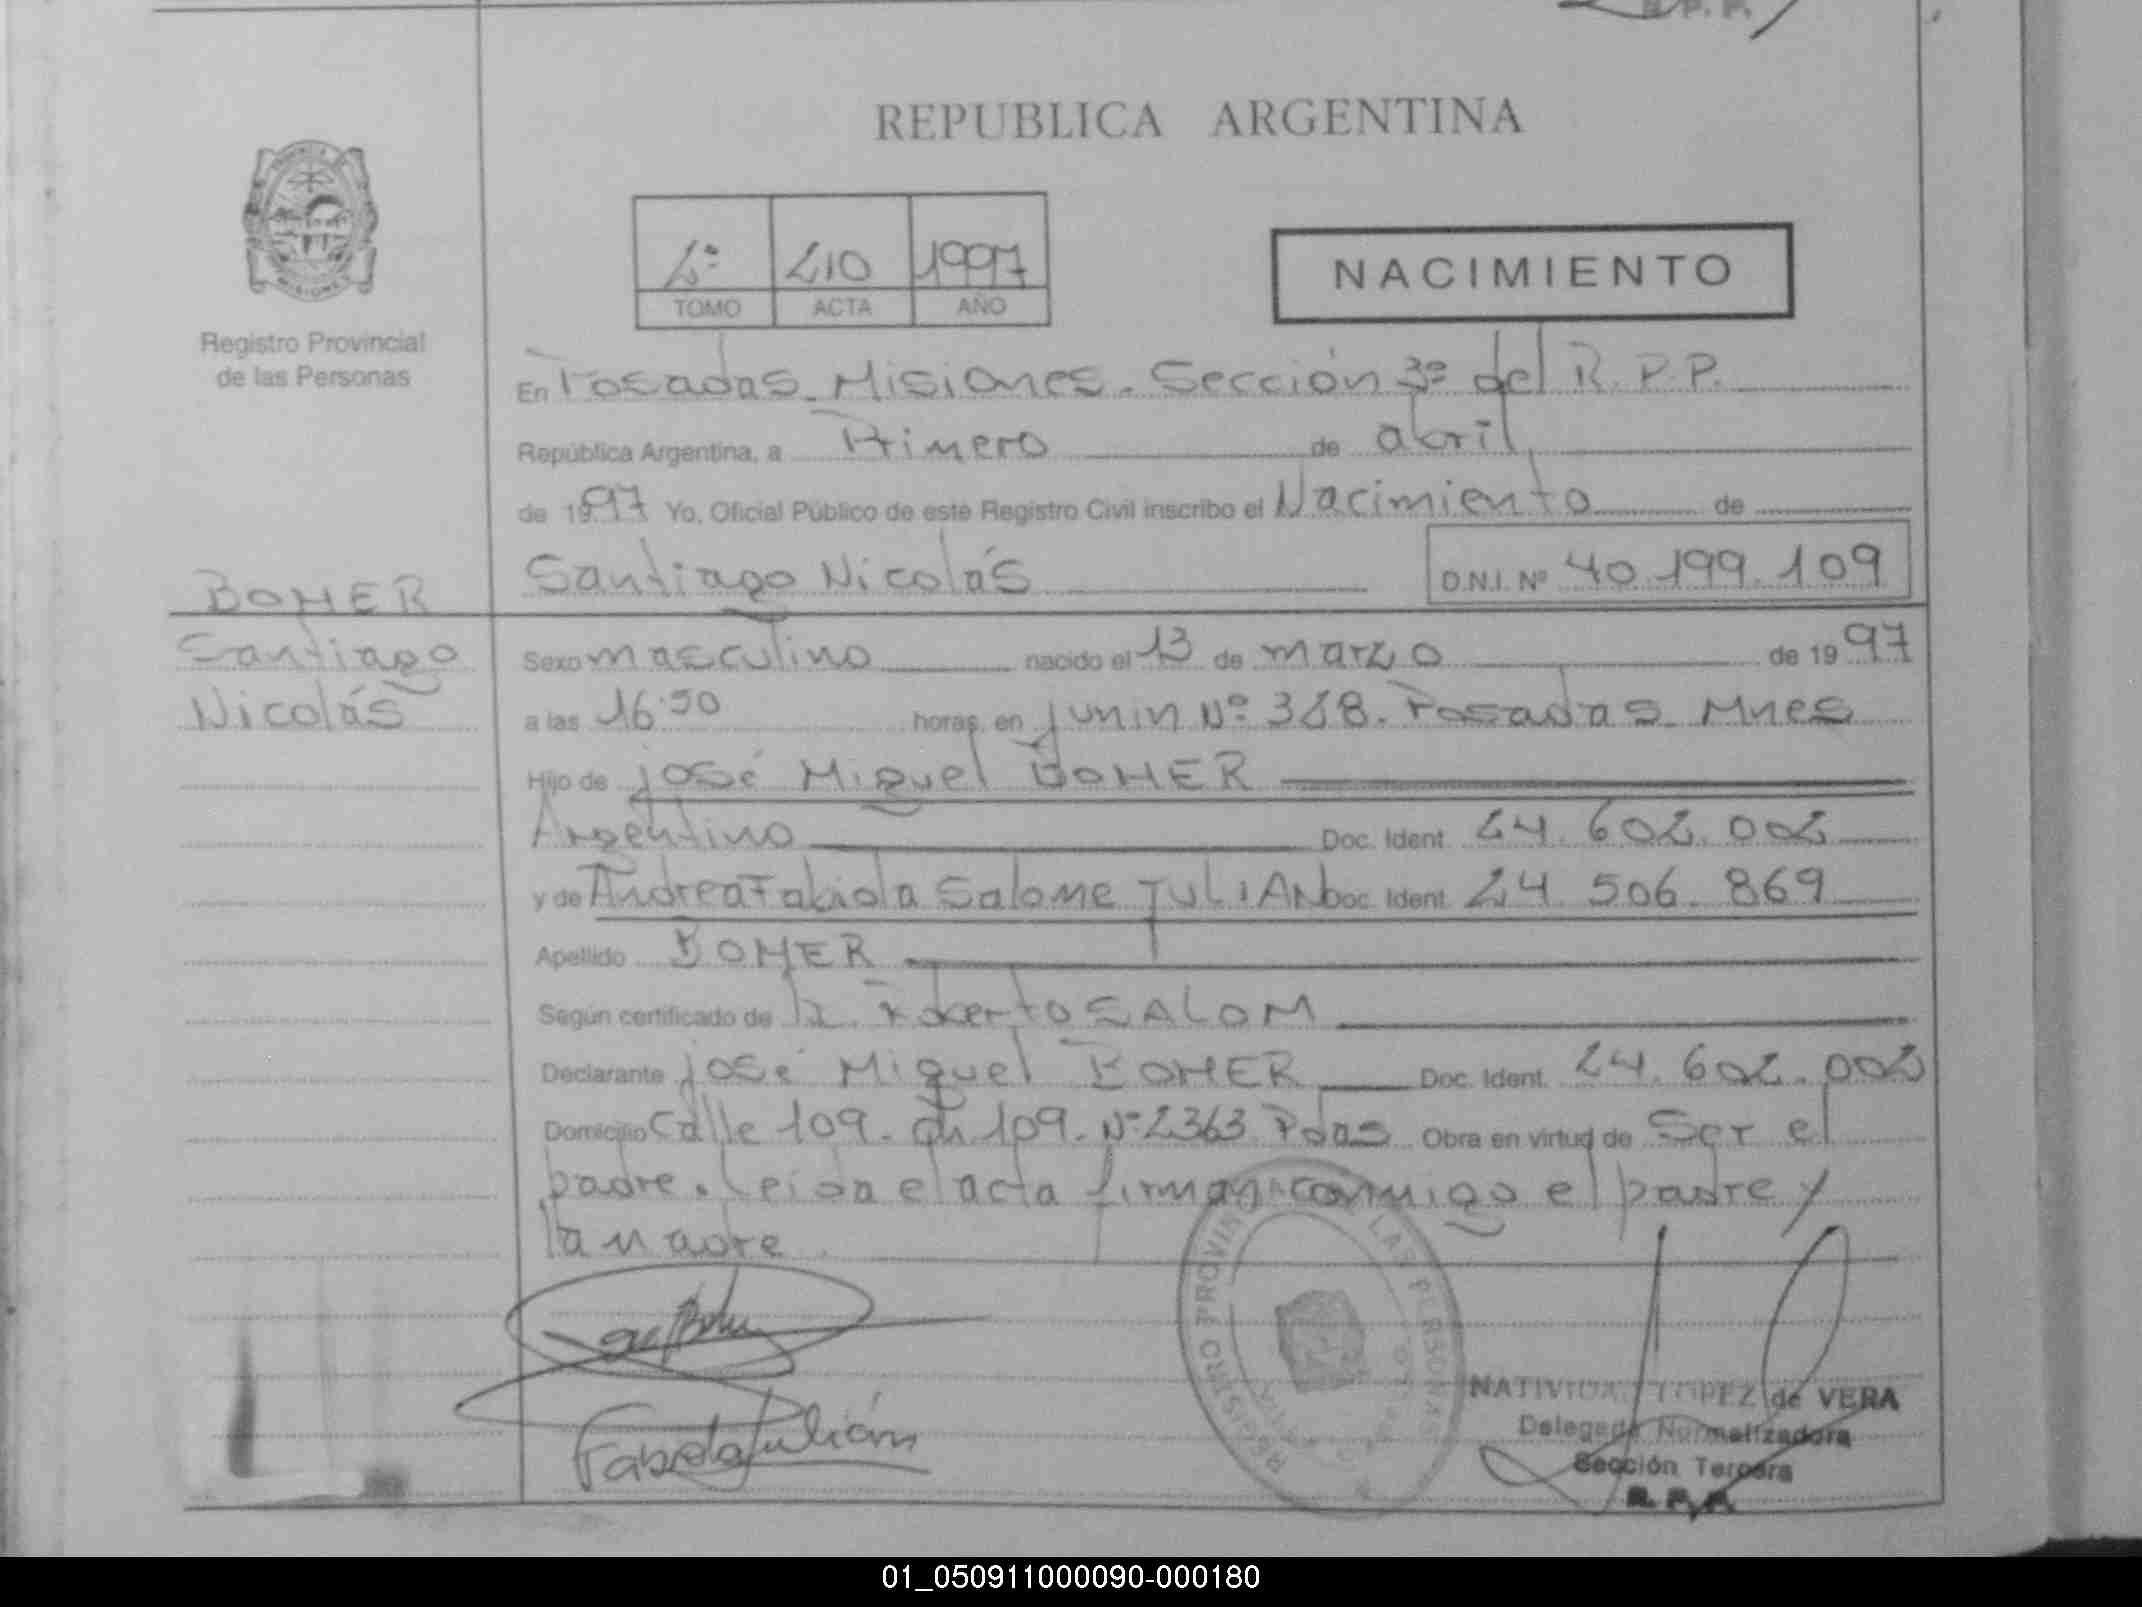 R. P. P.
REPUBLICA ARGENTINA
2º 210 1997
TOMO ACTA AÑO
NACIMIENTO
Registro Provincial
de las Personas
En Posadas Misiones. Sección 3º del R. P. P.
República Argentina, a Primero de abril
de 1997 Yo, Oficial Público de este Registro Civil inscribo el Nacimiento de
Santiago Nicolás D.N.I. Nº 40.199.109
BOHER
Santiago
Nicolás
Sexo masculino nacido el 13 de marzo de 1997
a las horas, en junin Nº Posadas Mnes
Hijo de josé Miguel BOHER
Argentino Doc. Ident. 24.602.002
y de Andrea Fabiola Salome JULIAN Doc. Ident. 24.506.869
Apellido BOHER
Según certificado de Roberto SALOM
Declarante josé Miguel BOHER Doc. Ident. 24.602.002
Domicilio Calle 109. ch 109. Nº 2363 Pdas Obra en virtud de Ser el
padre. Leida el acta firman conmigo el padre y
la madre
REGISTRO PROVIN LAS PERSONAS
Fabiola Julián
NATIVIDAD LOPEZ de VERA
Delegada Normalizadora
Sección Tercera
R. P. P.
01_050911000090-000180